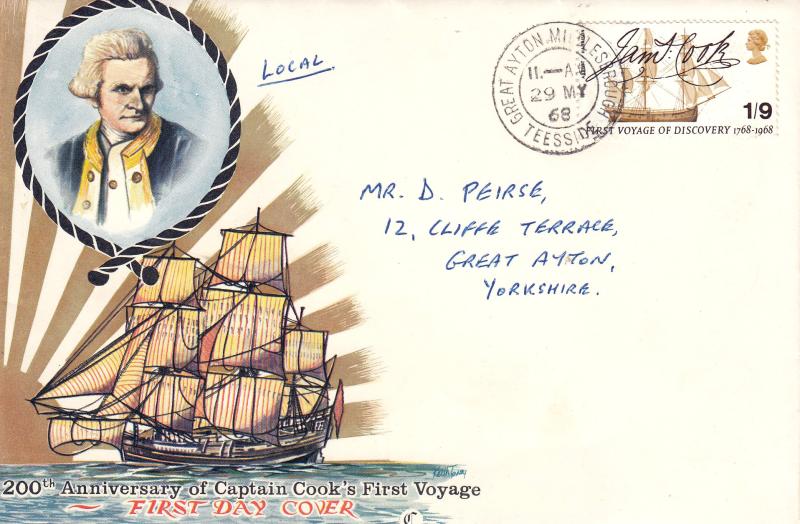 LOCAL
GREAT AYTON, MIDDLESBROUGH
11.—AM
29 MY
68
TEESSIDE
Jam.s Cook
1/9
FIRST VOYAGE OF DISCOVERY 1768-1968
MR. D. PEIRSE,
12, CLIFFE TERRACE,
GREAT AYTON,
YORKSHIRE.
200th Anniversary of Captain Cook's First Voyage
~ FIRST DAY COVER